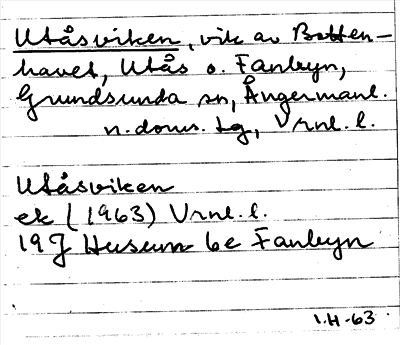 Utåsviken, vik av Botten-
havet, Utås o. Fanbyn,
Grundsunda sn, Ångermanl.
n. doms. lg, Vrnl. l.
Utåsviken
ek (1963) Vrnl. l.
19J Husum 6e Fanbyn
I.H-63